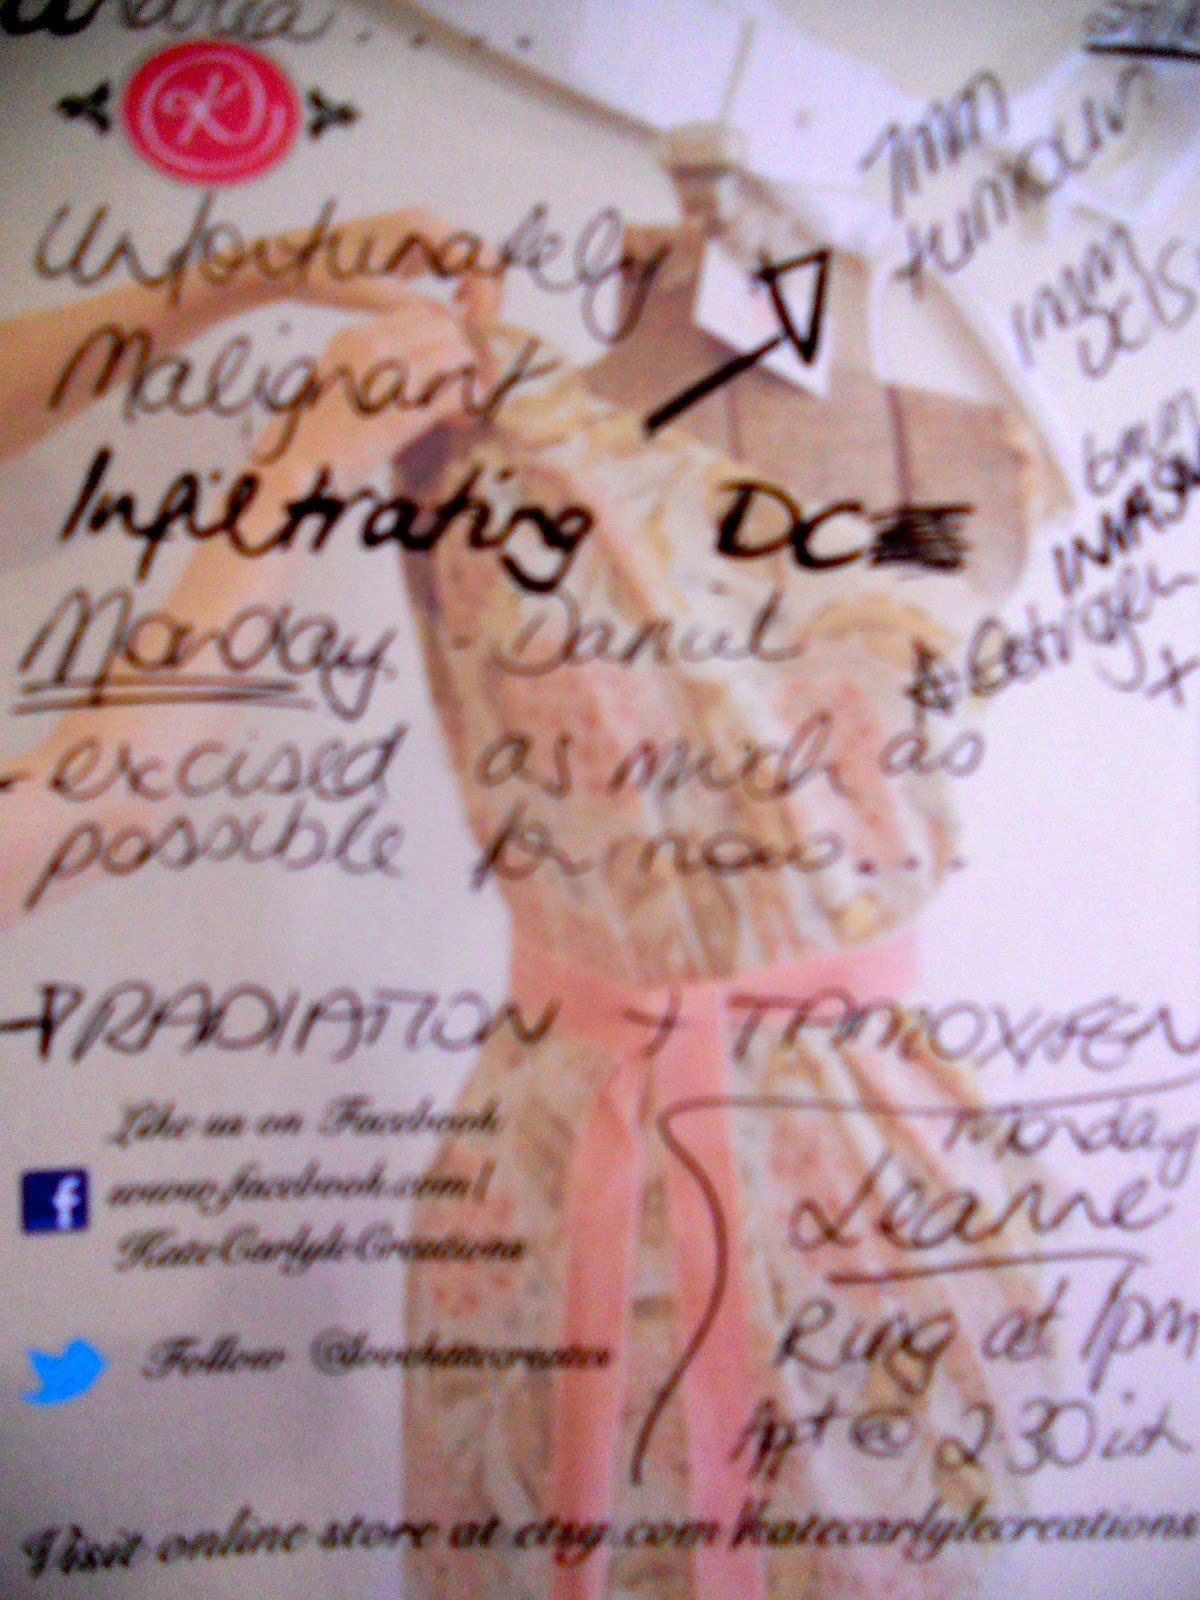 K
7mm
tumour
Unfortunately
1mm
DCIS
Malignant
6mm
Infiltrating DC
Monday - Daniel
Oestrogen
+
- excised as much as
possible for now...
RADIATION + TAMOXIFEN
Like us on Facebook
Monday
www.facebook.com/
Leanne
KateCarlyleCreations
Ring at 1pm
Follow @lovekatecreates
Appt @ 2.30ish
Visit online store at etsy.com/katecarlylecreations